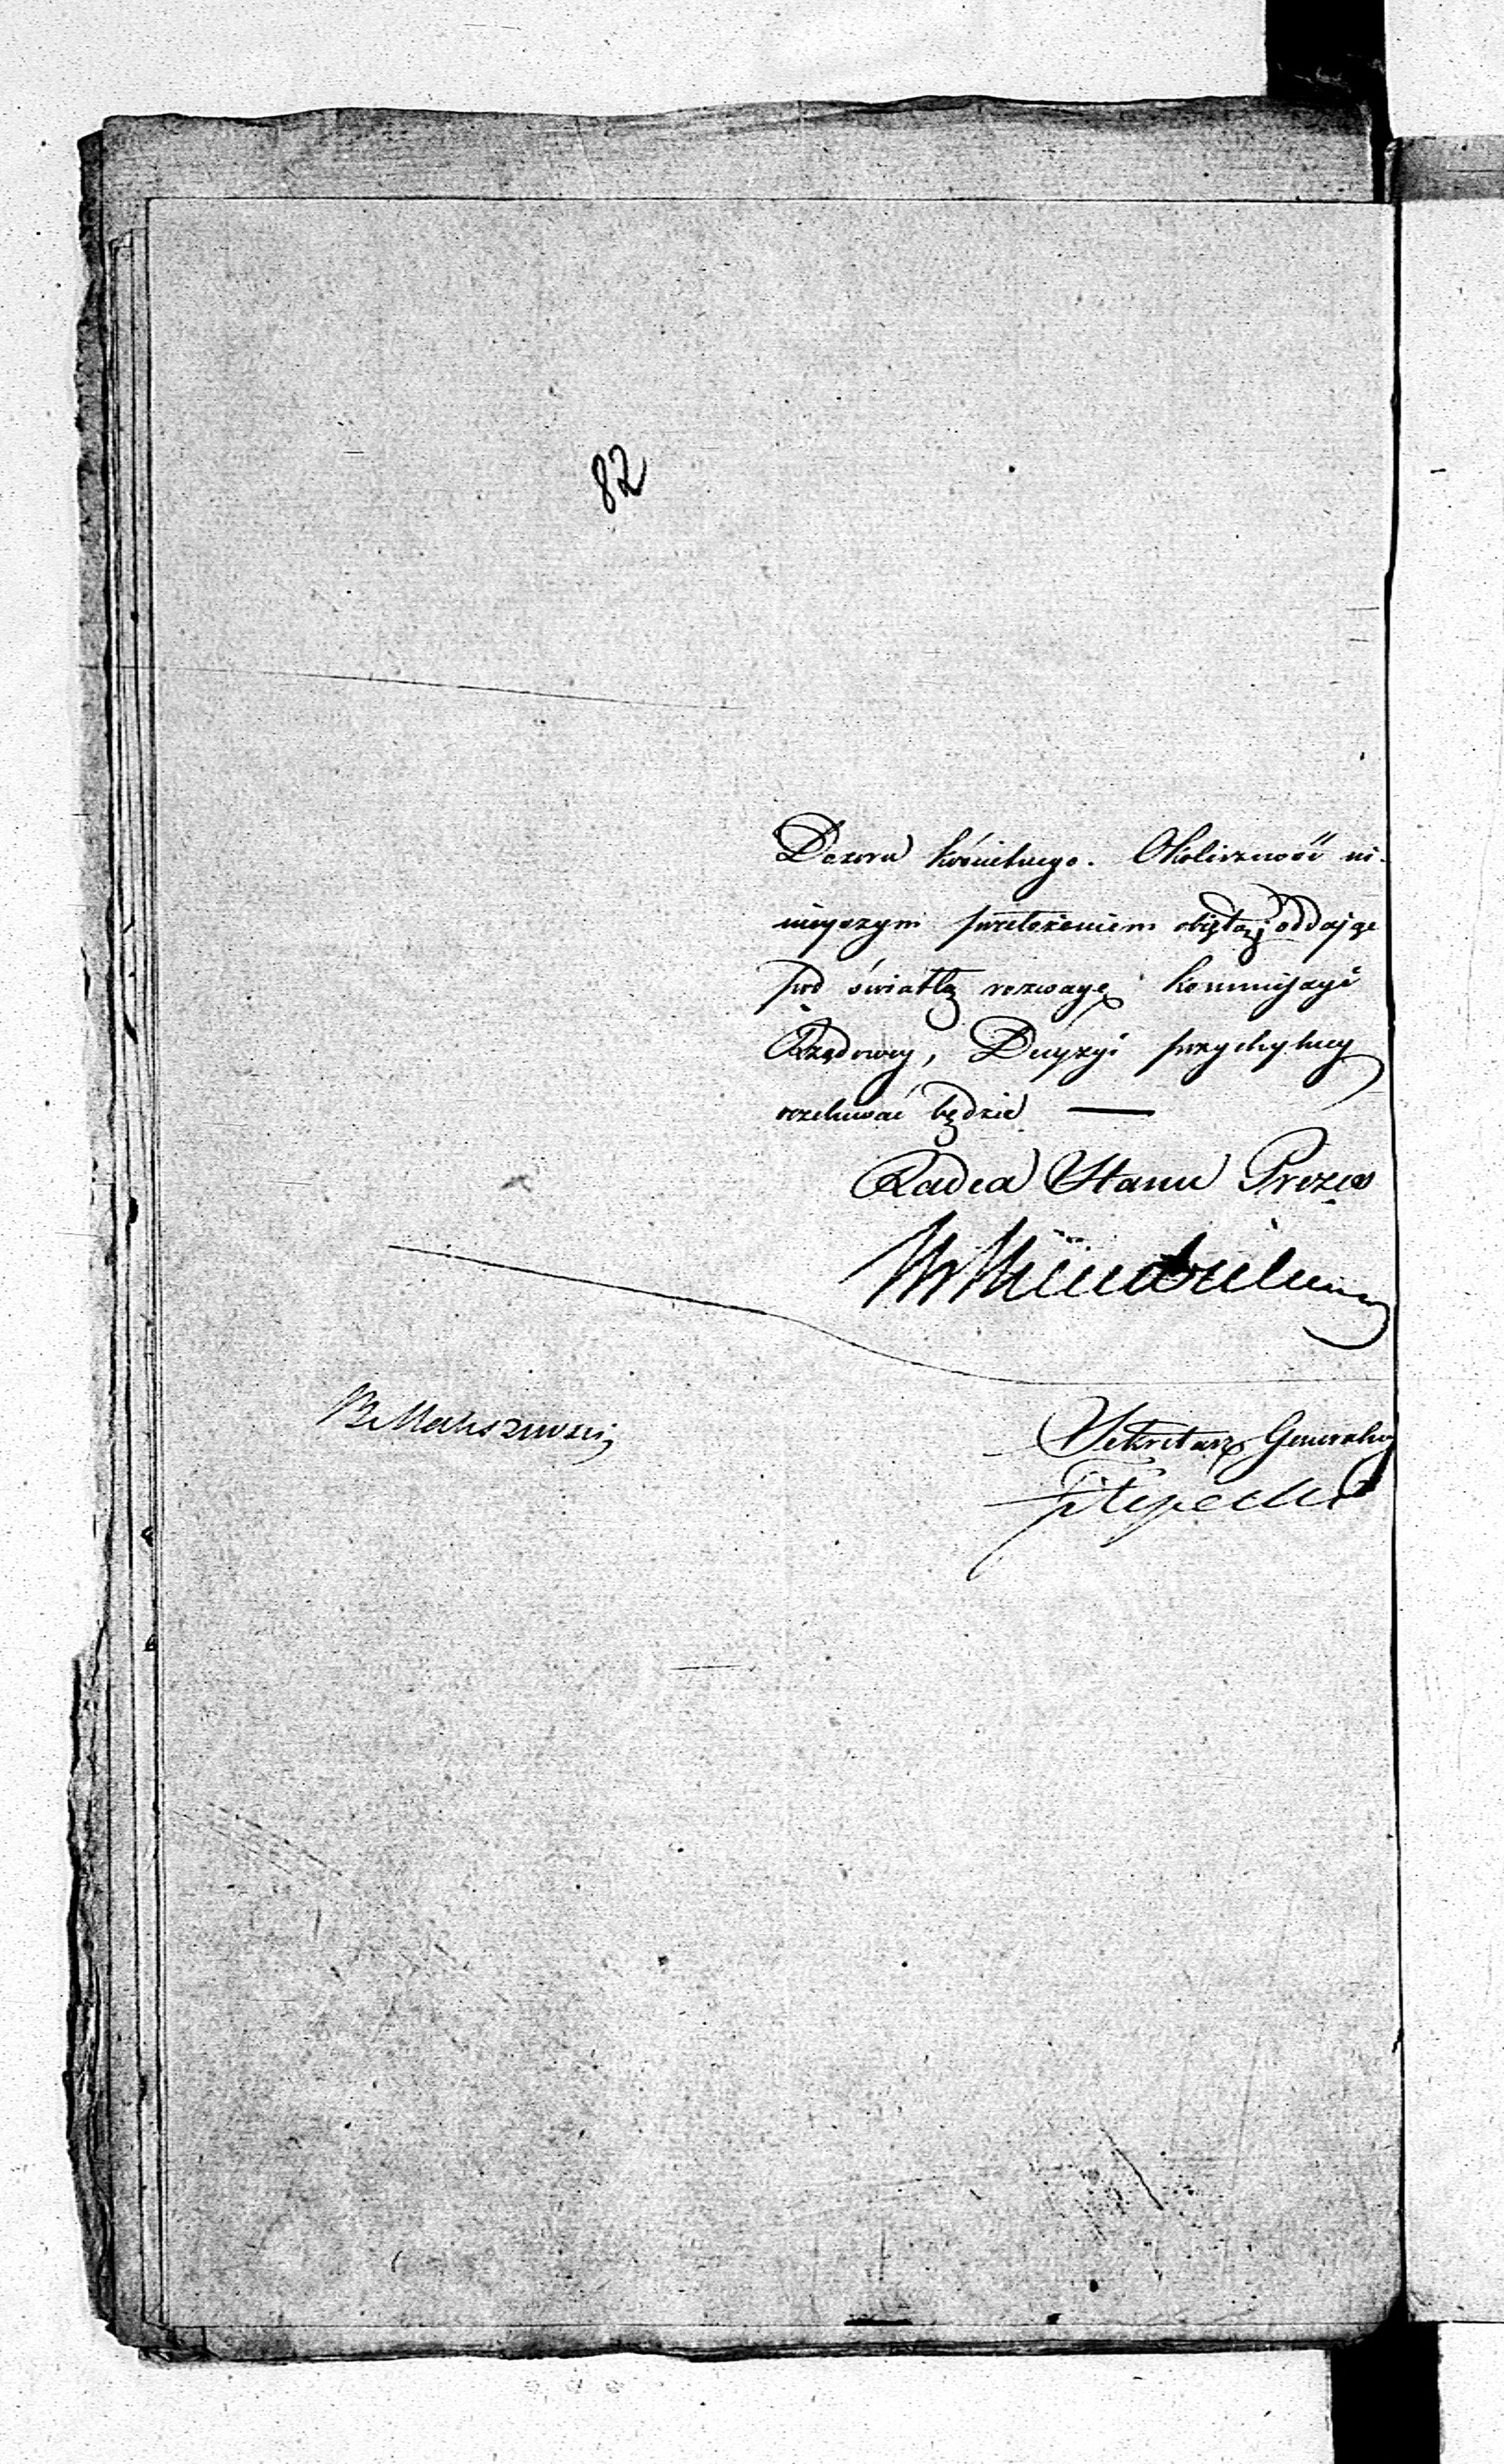 82
Dozoru kościelnego. Okoliczność ni-
nieyszym przełożeniem obiętą, oddaiąc
pod światłą rozwagę Kommissyi
Rządowey, Decyzyi przychylney
oczekiwać będzie —
Radca Stanu Prezes
Sekretarz Generalny
Filipecki